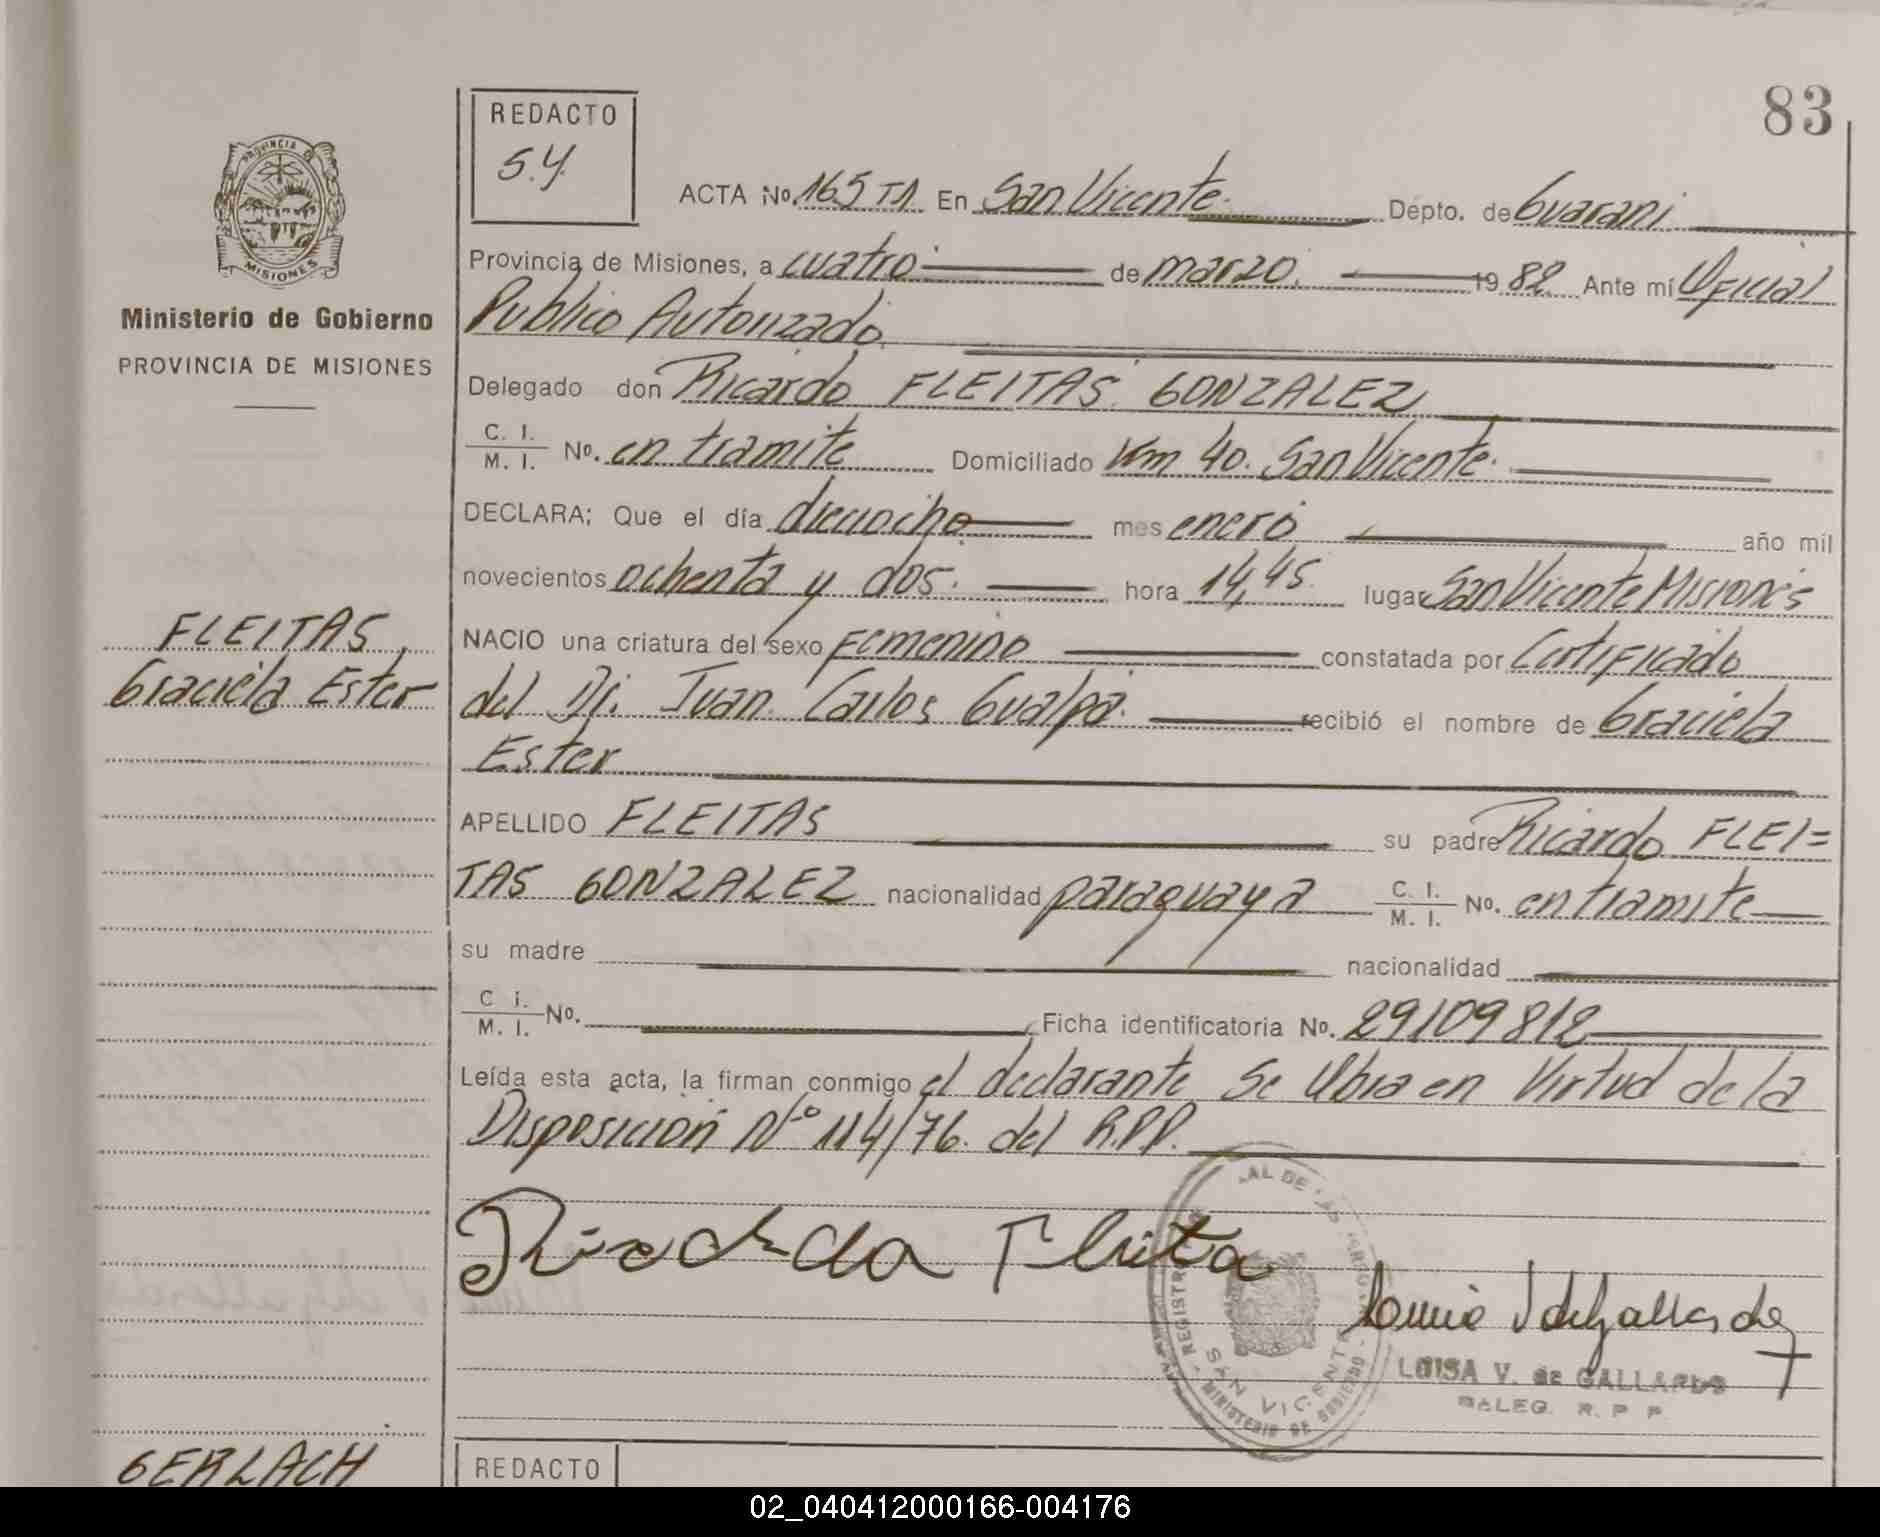 83
REDACTO
S.Y.
PROVINCIA
MISIONES
Ministerio de Gobierno
PROVINCIA DE MISIONES
ACTA No. 165 T1. En San Vicente. Dépto. de Guaraní
Provincia de Misiones, a cuatro de marzo. 1982. Ante mí Oficial
Publico Autorizado.
Delegado don Ricardo FLEITAS GONZALEZ
C. I. / M. I. No. en tramite Domiciliado Km 40. San Vicente.
DECLARA; Que el día dieciocho mes enero año mil
novecientos ochenta y dos. hora 14,45. lugar San Vicente Misiones
NACIO una criatura del sexo Femenino constatada por Certificado
del Dr. Juan Carlos Gualpa. recibió el nombre de Graciela
Ester
FLEITAS,
Graciela Ester
APELLIDO FLEITAS su padre Ricardo FLEI=
TAS GONZALEZ nacionalidad paraguaya C. I. / M. I. No. en tramite
su madre nacionalidad
C i. / M. I. No. Ficha identificatoria No. 29109812
Leída esta acta, la firman conmigo el declarante, Se labra en Virtud de la
Disposición Nº 114/76. del R.P.P.
AL DE LAS
REGISTR
SAN VICENTE
MINISTERIO DE GOBIERNO
LUISA V. de GALLARDO
DELEG. R. P. P.
GERLACH
REDACTO
02_040412000166-004176